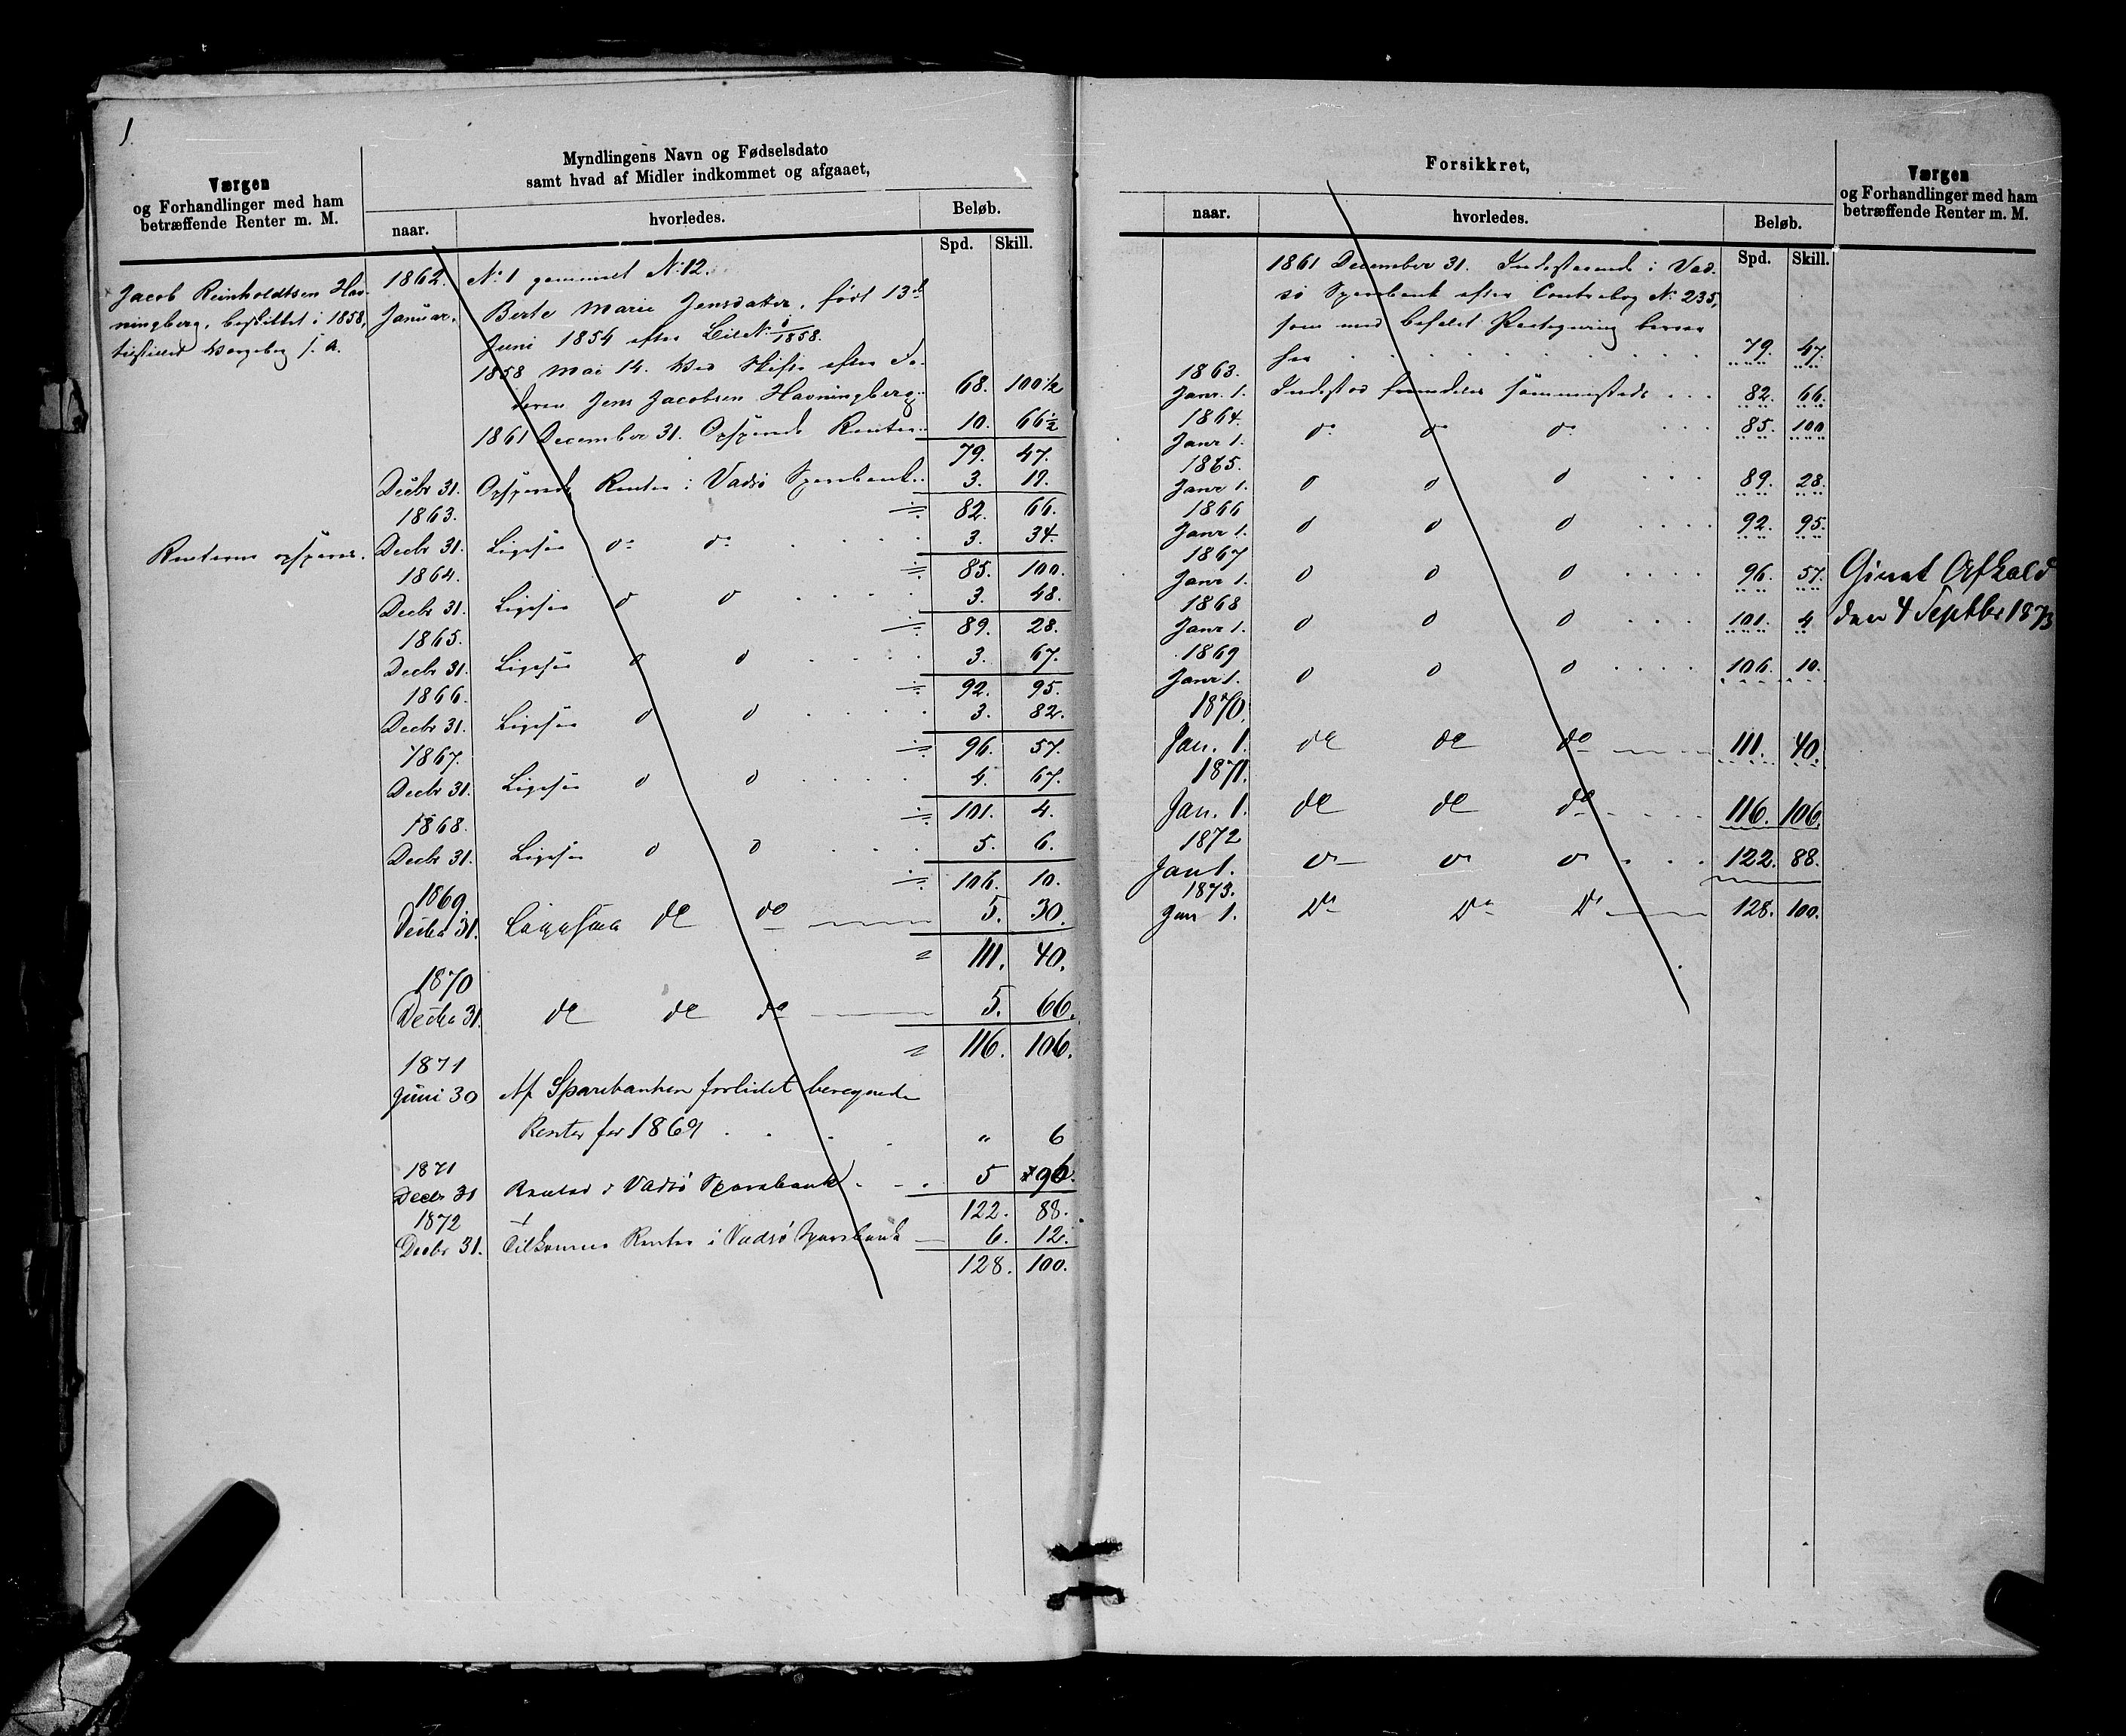 1.
Værgen
og Forhandlinger med ham
betræffende Renter m. M.
Myndlingens Navn og Fødselsdato
samt hvad af Midler indkommet og afgaaet,
naar.
hvorledes.
Beløb.
Spd. Skill.
Jacob Reinholdtsen Hav-
ningberg, beskikket i 1858,
tilstillet Værgebog s. A.
Renterne opspares.
1862. No 1 gammelt No 12.
Januar. Berte Marie Jensdatter, født 13de
Juni 1854 efter Bil. No /1858.
1858 Mai 14. Ved Skifte efter Fa-
deren Jens Jacobsen Havningberg 68. 100 1/2
1861 December 31. Opsparede Renter 10. 66 1/2
79. 47.
Decbr 31. Opsparede Renter i Vadsö Sparebank 3. 19.
1863. 82. 66.
Decbr 31. Ligesaa do do 3. 34.
1864. 85. 100.
Decbr 31. Ligesaa do do 3. 48.
1865. 89. 28.
Decbr 31. Ligesaa do do 3. 67.
1866. 92. 95.
Decbr 31. Ligesaa do do 3. 82.
1867. 96. 57.
Decbr 31. Ligesaa do do 4. 67.
1868. 101. 4.
Decbr 31. Ligesaa do do 5. 6.
106. 10.
1869
Decbr 31. Ligesaa do do 5. 30.
111. 40.
1870
Decbr 31. do do do 5. 66.
116. 106.
1871
Juni 30 Af Sparebanken forlidet beregnede
Renter for 1869 " 6
1871
Decbr 31 Renter i Vadsö Sparebank 5 96.
1872 122. 88.
Decbr 31. Tilkomne Renter i Vadsö Sparebank 6. 12.
128. 100.
Forsikkret,
naar.
hvorledes.
Beløb.
Spd. Skill.
Værgen
og Forhandlinger med ham
betræffende Renter m. M.
1861 December 31. Indestaaende i Vad-
sö Sparebank efter Contrabog No 235,
som med befalet Paategning beroer
her 79. 47.
1863.
Janr. 1. Indestod fremdeles sammesteds 82. 66.
1864.
Janr 1. do do do 85. 100
1865.
Janr 1. do do do 89. 28.
1866
Janr 1. do do do 92. 95.
1867
Janr 1. do do do 96. 57.
1868
Janr 1. do do do 101. 4
1869
Janr 1. do do do 106. 10.
1870.
Jan. 1. do do do 111. 40.
1871.
Jan. 1. do do do 116. 106.
1872
Jan 1. do do do 122. 88.
1873.
Jan 1. Do Do Do 128. 100.
Givet Afkald
den 4 Septbr 1873